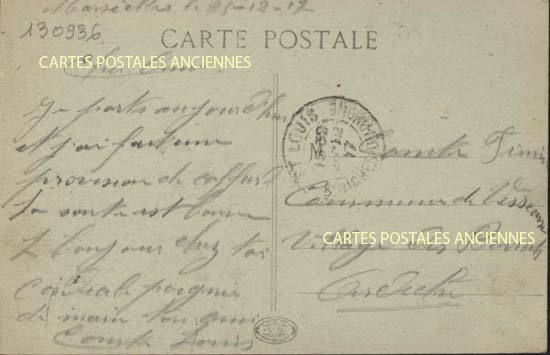 Marseille le 25-12-17
130936
CARTE POSTALE
CARTES POSTALES ANCIENNES
Cher
Je parts aujourd'hui
et j'ai fait une
provision de
la sante est bonne
le bonjour chez toi
cordiale poignée
de main ton
Comte Louis
ST LOUIS
BOUCHES DU RHONE
Comte
Commune de Vesseaux
Village des
CARTES POSTALES ANCIENNES
Ardèche